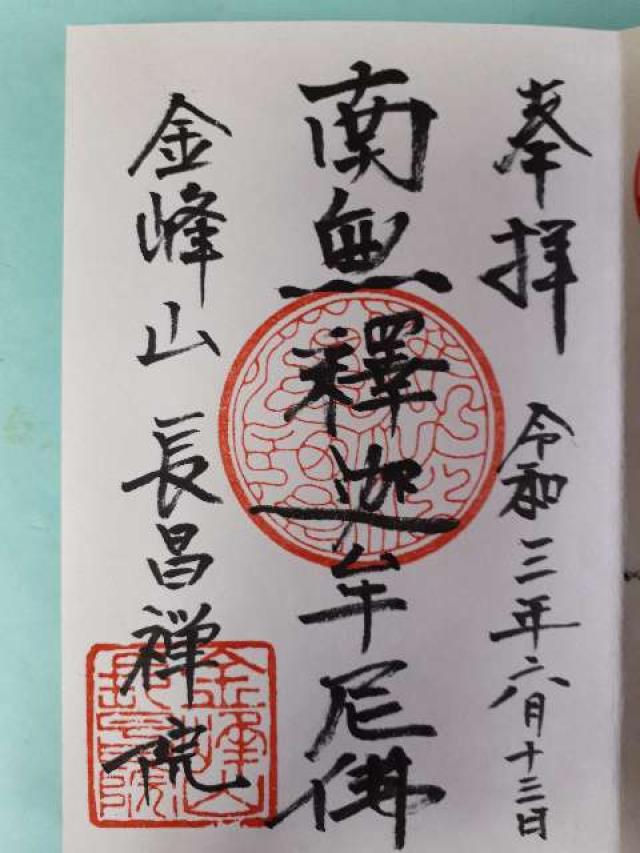 奉拝 令和三年六月十三日
南無釋迦牟尼佛
金峰山 長昌禅院